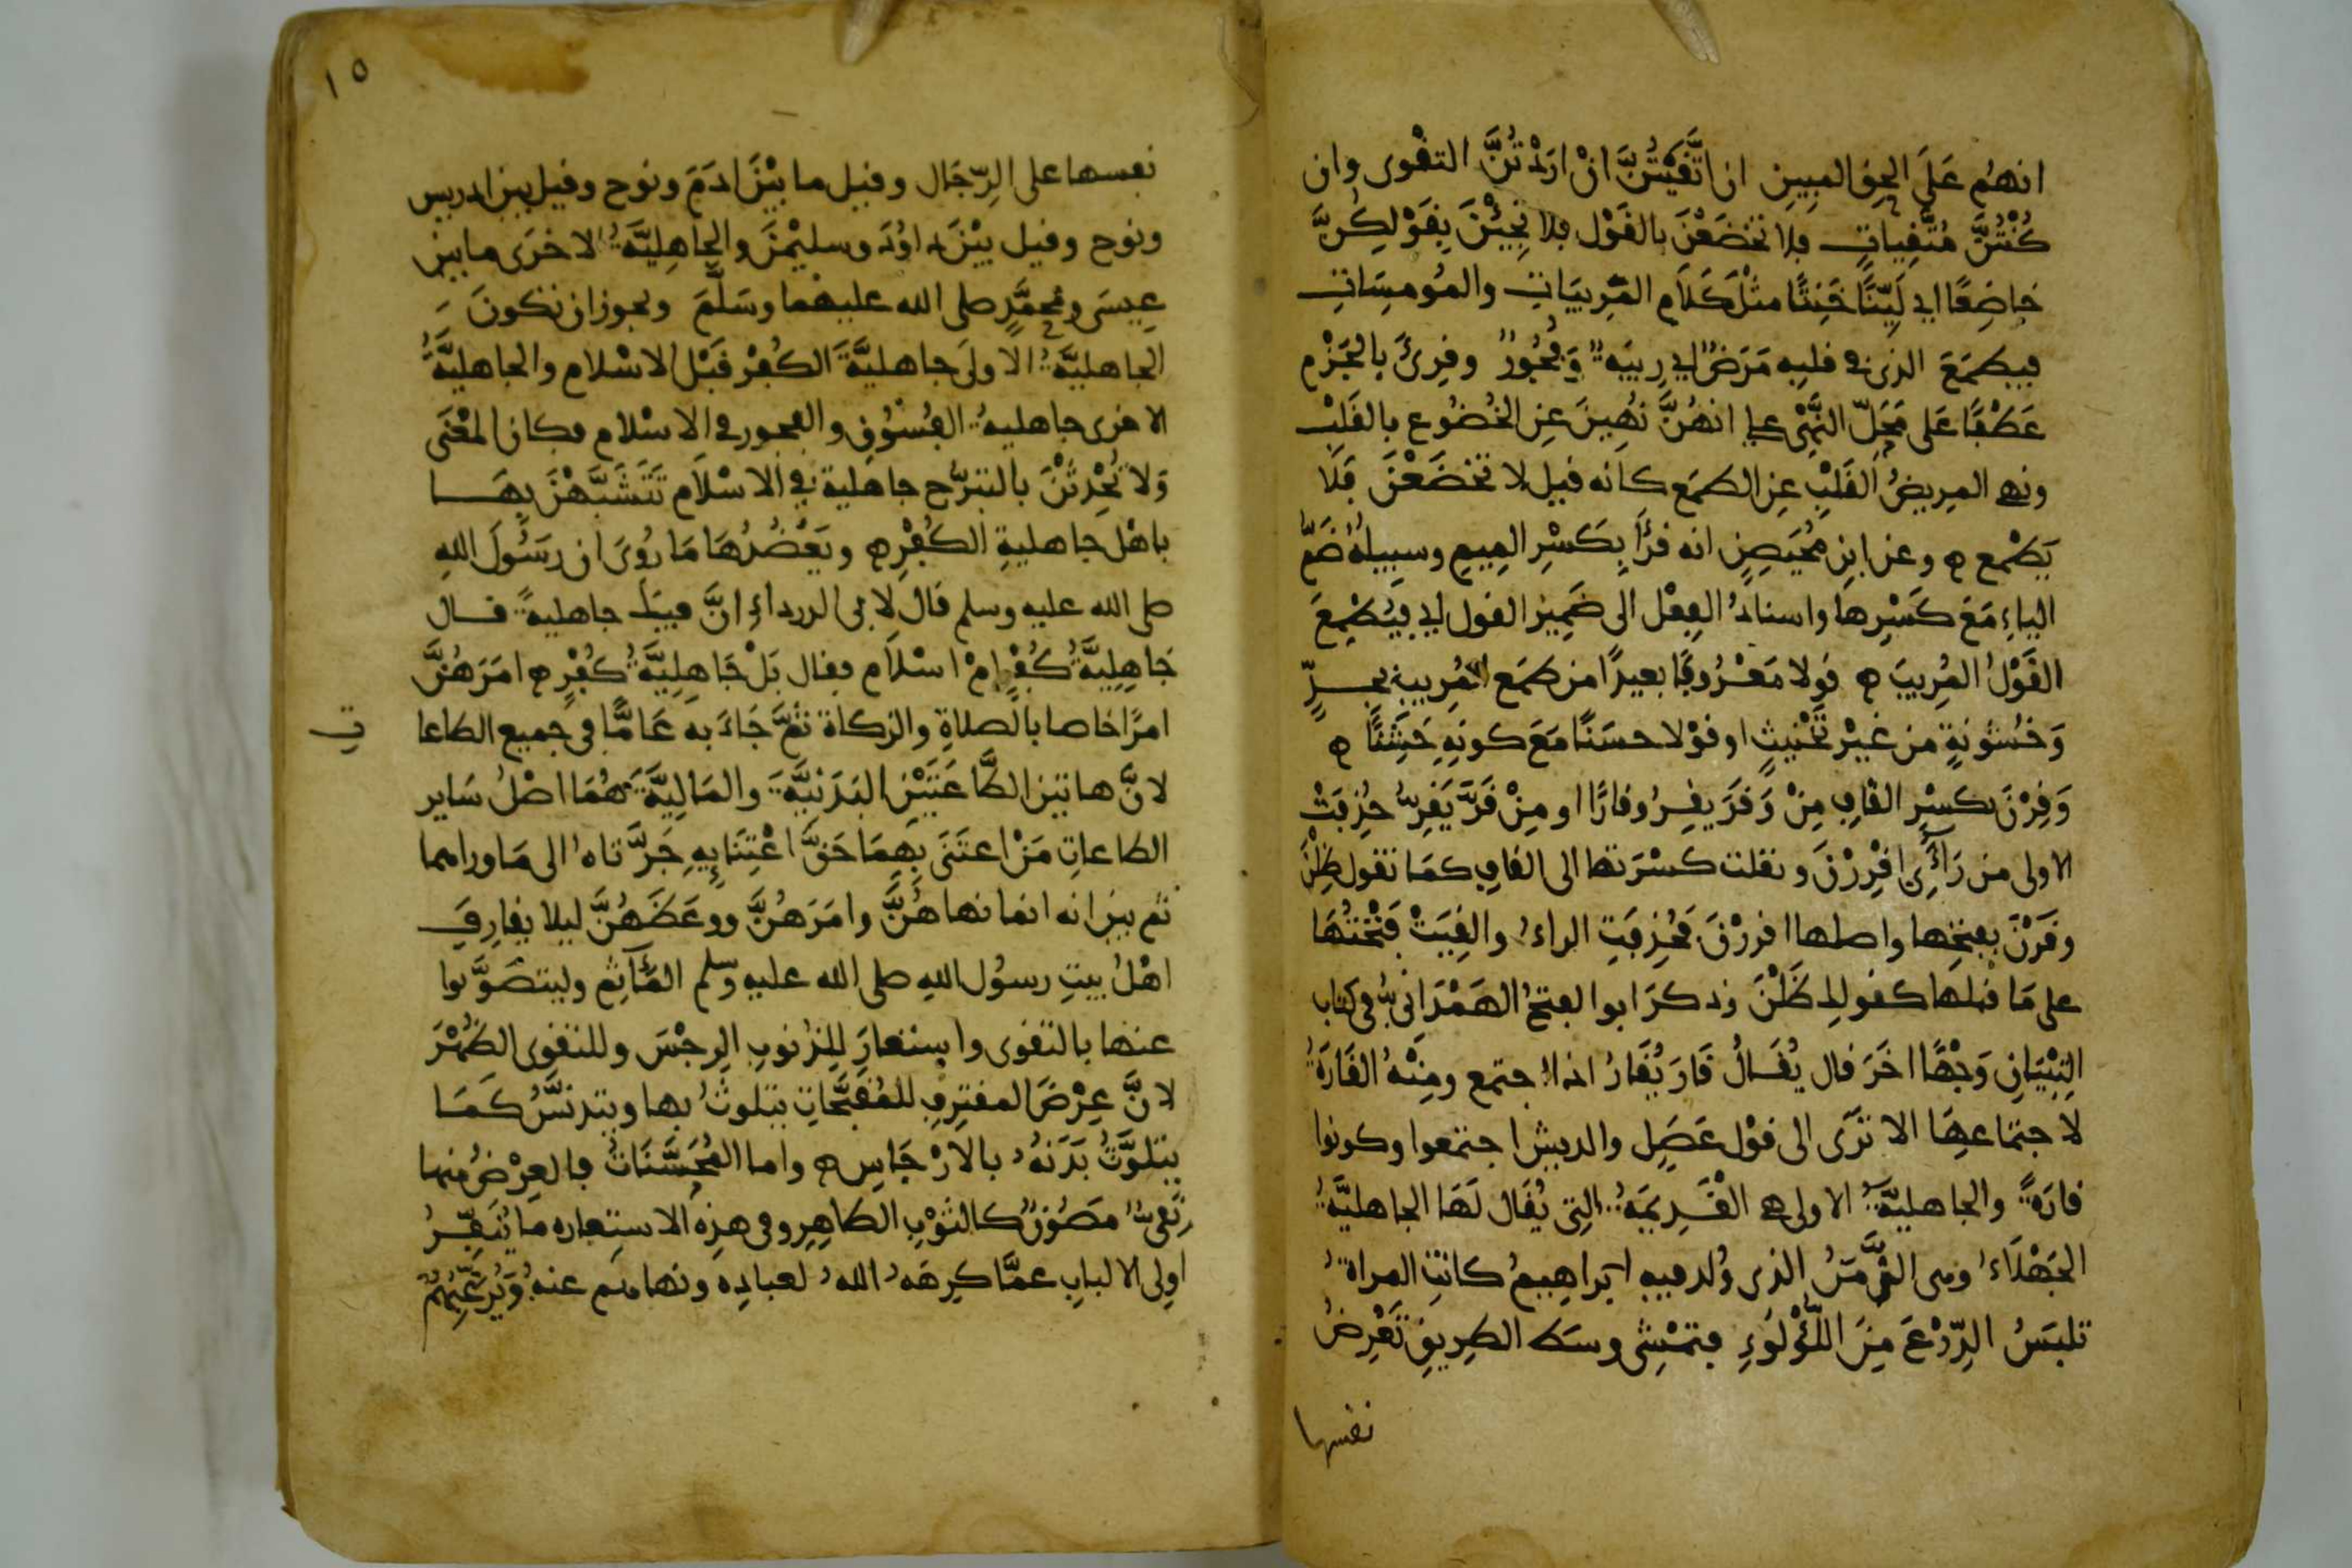 انهُم عَلَى الحِق المبِينِ ان اتَّقَيْتُنَّ انْ ارَدْتُنَّ التقْوى وان
كُنْتُنَّ مُتَّقِياتٍ فلا تخضَعْنَ بالقَوْل فلا تُجِبْنَ بِقَوْلِكُنَّ
خاضِعًا اي لَيِّنًا خَنِثًا مثْلَ كَلَامِ المُرِيبَاتِ والمُومِسَاتِ
فيطمَعَ الذى فى قلبِه مَرَضٌ اي رِيبَةٌ وَفُجُورٌ وقرِئَ بالجَزْمِ
عَطْفًا عَلى مَحَلِّ النَّهْىِ على انهُنَّ نُهِينَ عنِ الخُضُوعِ بالقَلْبِ
ونهى المرِيضُ القَلْبِ عنِ الطمَع كانه قيل لا تخضَعْنَ فَلَا
يَطْمع ه وعن ابن مُحَيْصِنٍ انه قرَأَ بِكَسْرِ المِيمِ وسبيلهُ ضَمُّ
الياءِ مَعَ كَسْرِها واسنادُ الفِعْل الى ضَمِيرِ القول اي فيُطْمِعَ
القَوْلُ المُرِيبَ ه قولا مَعْرُوفًا بعيدًا من طمَع المُرِيبِ بجِدٍّ
وَخُشُونةٍ من غيْر تخْنيثٍ او قوْلا حسَنًا مَعَ كونِهِ خَشِنًا ه
وَقِرْنَ بكسْرِ القَافِ مِنْ وَقَرَ يقِرُ وقارًا او مِنْ قَرَّ يَقِرُّ حُذِفَتْ
الاولى من رَآئَىِ اقْرِرْنَ ونقلت كسْرَتها الى القافِ كمَا تقول ظِلْنَ
وقَرْنَ بفتحِها واصلها اقررْنَ فَحُذِفَتِ الراءُ والقِيَتْ فَتْحَتُهَا
على مَا قبلها كقولك ظَلْنَ وذكرَ ابوا الفتحُ الهَمْدَانىُّ فى كتاب
التِبْيَانِ وَجْهًا اخَرَ قال يُقَالُ قَارَ يُقَارُ اذا اجتمع ومِنْهُ القَارَةُ
لاجتماعهَا الا تَرَى الى قوْل عَضَلٍ والديشِ اجتمعوا وكونوا
قارَةً والجاهليَّةُ الاولى هى القْدِيمَةُ التى يُقَال لَهَا الجاهليَّةُ
الجَهْلَاءُ وهى الزَّمَنُ الذى وُلد فيه ابراهِيمُ كانتِ المراةُ
تلبَسُ الدِّرْعَ مِنَ اللُّؤْلُوءِ فتمْشِى وسَط الطرِيقِ تَعْرِضُ
نفسها
١٥
نفسها على الرِّجَال وقيل ما بيْنَ ادَمَ ونوح وقيل بين ادريس
ونوح وقيل بيْنَ داوُدَ وسليْمٰنَ والجاهليَّةُ الاخرَى ما بين
عِيسَى ومُحمَّدٍ صلى الله عليهْما وسَلَّمَ ويجوز ان تكونَ
الجاهليَّةُ الاولَى جاهليَّةَ الكُفْرِ قَبْلَ الاسْلام والجاهليَّةُ
الاخرى جاهليةُ الفُسُوقِ والفجورِ فى الاسْلام فكان المعْنَى
وَلا تُحْدِثْنَ بالتبرُّج جاهلية فى الاسْلَام تَتَشَبَّهْنَ بِهَا
باهْل جاهليةِ الكُفْرِ ه ويَعْضُدُهَا مَا رُوِىَ ان رسَولَ اللهِ
صلى الله عليه وسلم قال لابى الدرداءِ انَّ فيكَ جاهليةً قال
جَاهِليَّةُ كُفْرٍ امْ اسْلَام فقال بَلْ جَاهِلِيَّةُ كُفْرٍ ه امَرَهُنَّ
امرًا خاصا بالصلاةِ والزكاة ثمَّ جَاءَ به عَامًّا فى جميع الطاعا
تِ
لانَّ هاتين الطَّاعَتَيْنِ البَدَنيَّةَ والمَاليَّةَ هُمَا اصْلُ سَايرِ
الطاعاتِ مَنْ اعتَنَى بِهِمَا حَقَّ اعْتِنَايِهِ جَرَّتاهُ الى مَا وراهما
ثم بين انه انما نهاهُنَّ وامَرَهُنَّ ووعَظَهُنَّ ليلا يقارِفَ
اهْلُ بيتِ رسُول اللهِ صلى الله عليهِ وسلم المَآثِم وليتصَوَّنوا
عنها بالتقوى واستعارَ للذنوبِ الرِجْسَ وللتقوَى الطُهْرَ
لانَّ عِرْضَ المقتِرفِ للمُقَبَّحَاتِ يتلوثُ بها ويتدنَّسُ كَمَا
يتلوَّثُ بَدَنهُ بالارْجَاسِ ه واما المُحَسَّنَاتُ فالعِرْضُ منها
نَقىٌّ مَصُونٌ كالثوْبِ الطاهِرِ وفى هذِهِ الاستِعاره مَا يُنَفِّرُ
اولِى الالبابِ عمَّا كرِهَهُ اللهُ لعبادِهِ ونهاهم عنهُ ويُرَغِّبُهُمْ